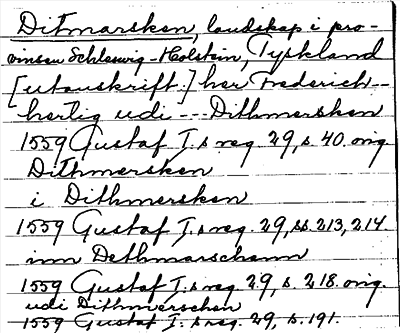 Ditmarsken, landskap i pro-
vinsen Schleswig-Holstein, Tyskland
[utanskrift:] her Frederich --
hertig udi --- Dithmersken
1559 Gustaf I:s reg. 29, s. 40. orig.
Dithmersken
i Dithmersken
1559 Gustaf I:s reg. 29, ss. 213, 214.
inn Dethmarschenn
1559 Gustaf I:s reg. 29, s. 218. orig.
udi Dithmerschen
1559 Gustaf I:s reg. 29, s. 191.